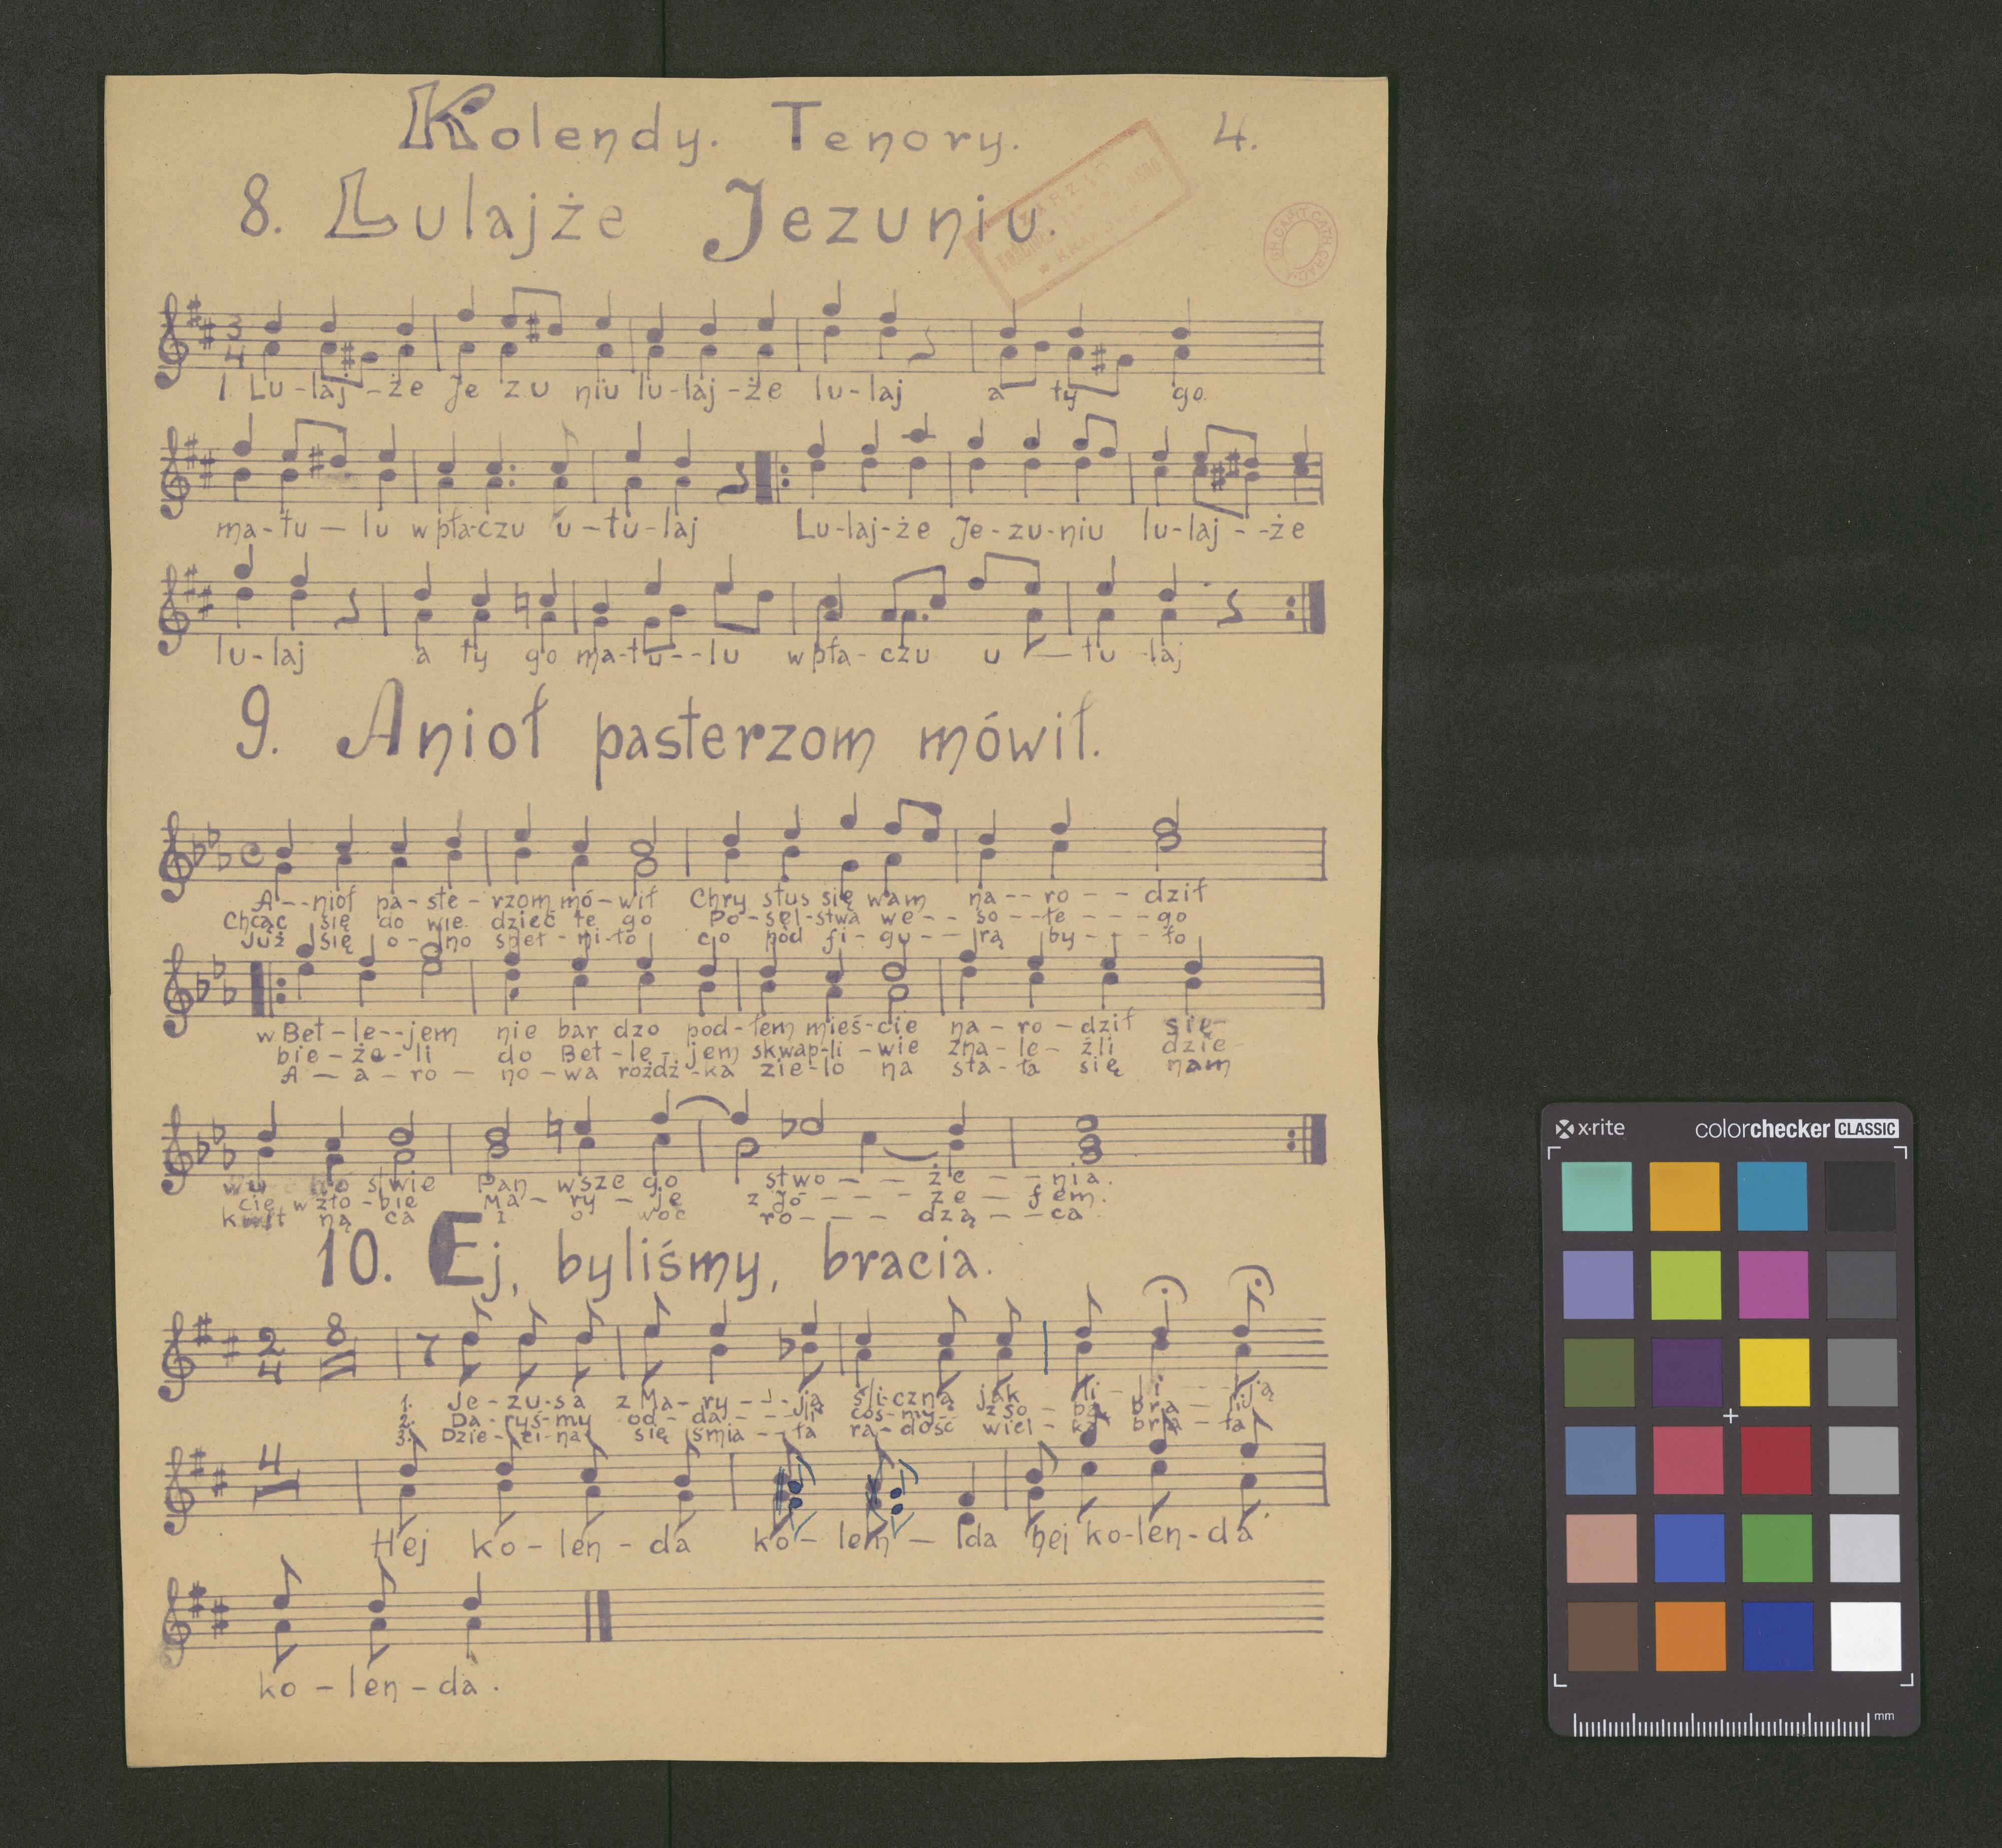 Kolendy. Tenory. 4.
8. Lulajże Jezuniu.
ARCH. CAPIT. CATH. CRAC.
3
4
1. Lu-laj-że Je zu niu lu-laj-że lu-laj a ty go
ma-tu-lu w pła-czu u-tu-laj Lu-laj-że Je-zu-niu lu-laj--że
lu-laj a ty go ma-tu--lu w pła-czu u — tu-laj
9. Anioł pasterzom mówił.
A--nioł pa-ste-rzom mó-wił Chry stus się wam na--ro---dził
Chcąc się do wie dzieć te go Po-sel-stwa we--so--łe---go
Już się o-no speł-ni-ło co pod fi-gu--rą by---ło
w Bet-le--jem nie bar dzo pod-łem mieś-cie na-ro-dził się
bie-że-li do Bet-le-jem skwap-li-wie zna-le-źli dzie
A-a-ro- no-wa różdż-ka zie-lo na sta-ła się nam
stwie Pan wsze go stwo-- że---nia.
cię w żło-bie Ma-ry-ję z Jó--- ze-fem.
ną ca I o woc ro--- dzą--ca.
10. Ej, byliśmy, bracia.
2
4
8
1. Je-zu-sa z Ma-ry---ją śli-czną jak li-li---ją
2. Da-ryś-my od-da---li coś-my z so-bą bra-li
3. Dzie-ci-na się śmia--ła ra-dość wiel-ką bra-ła
4
Hej ko-len-da ko-len-da hej ko-len-da
ko-len-da.
x·rite colorchecker CLASSIC
mm